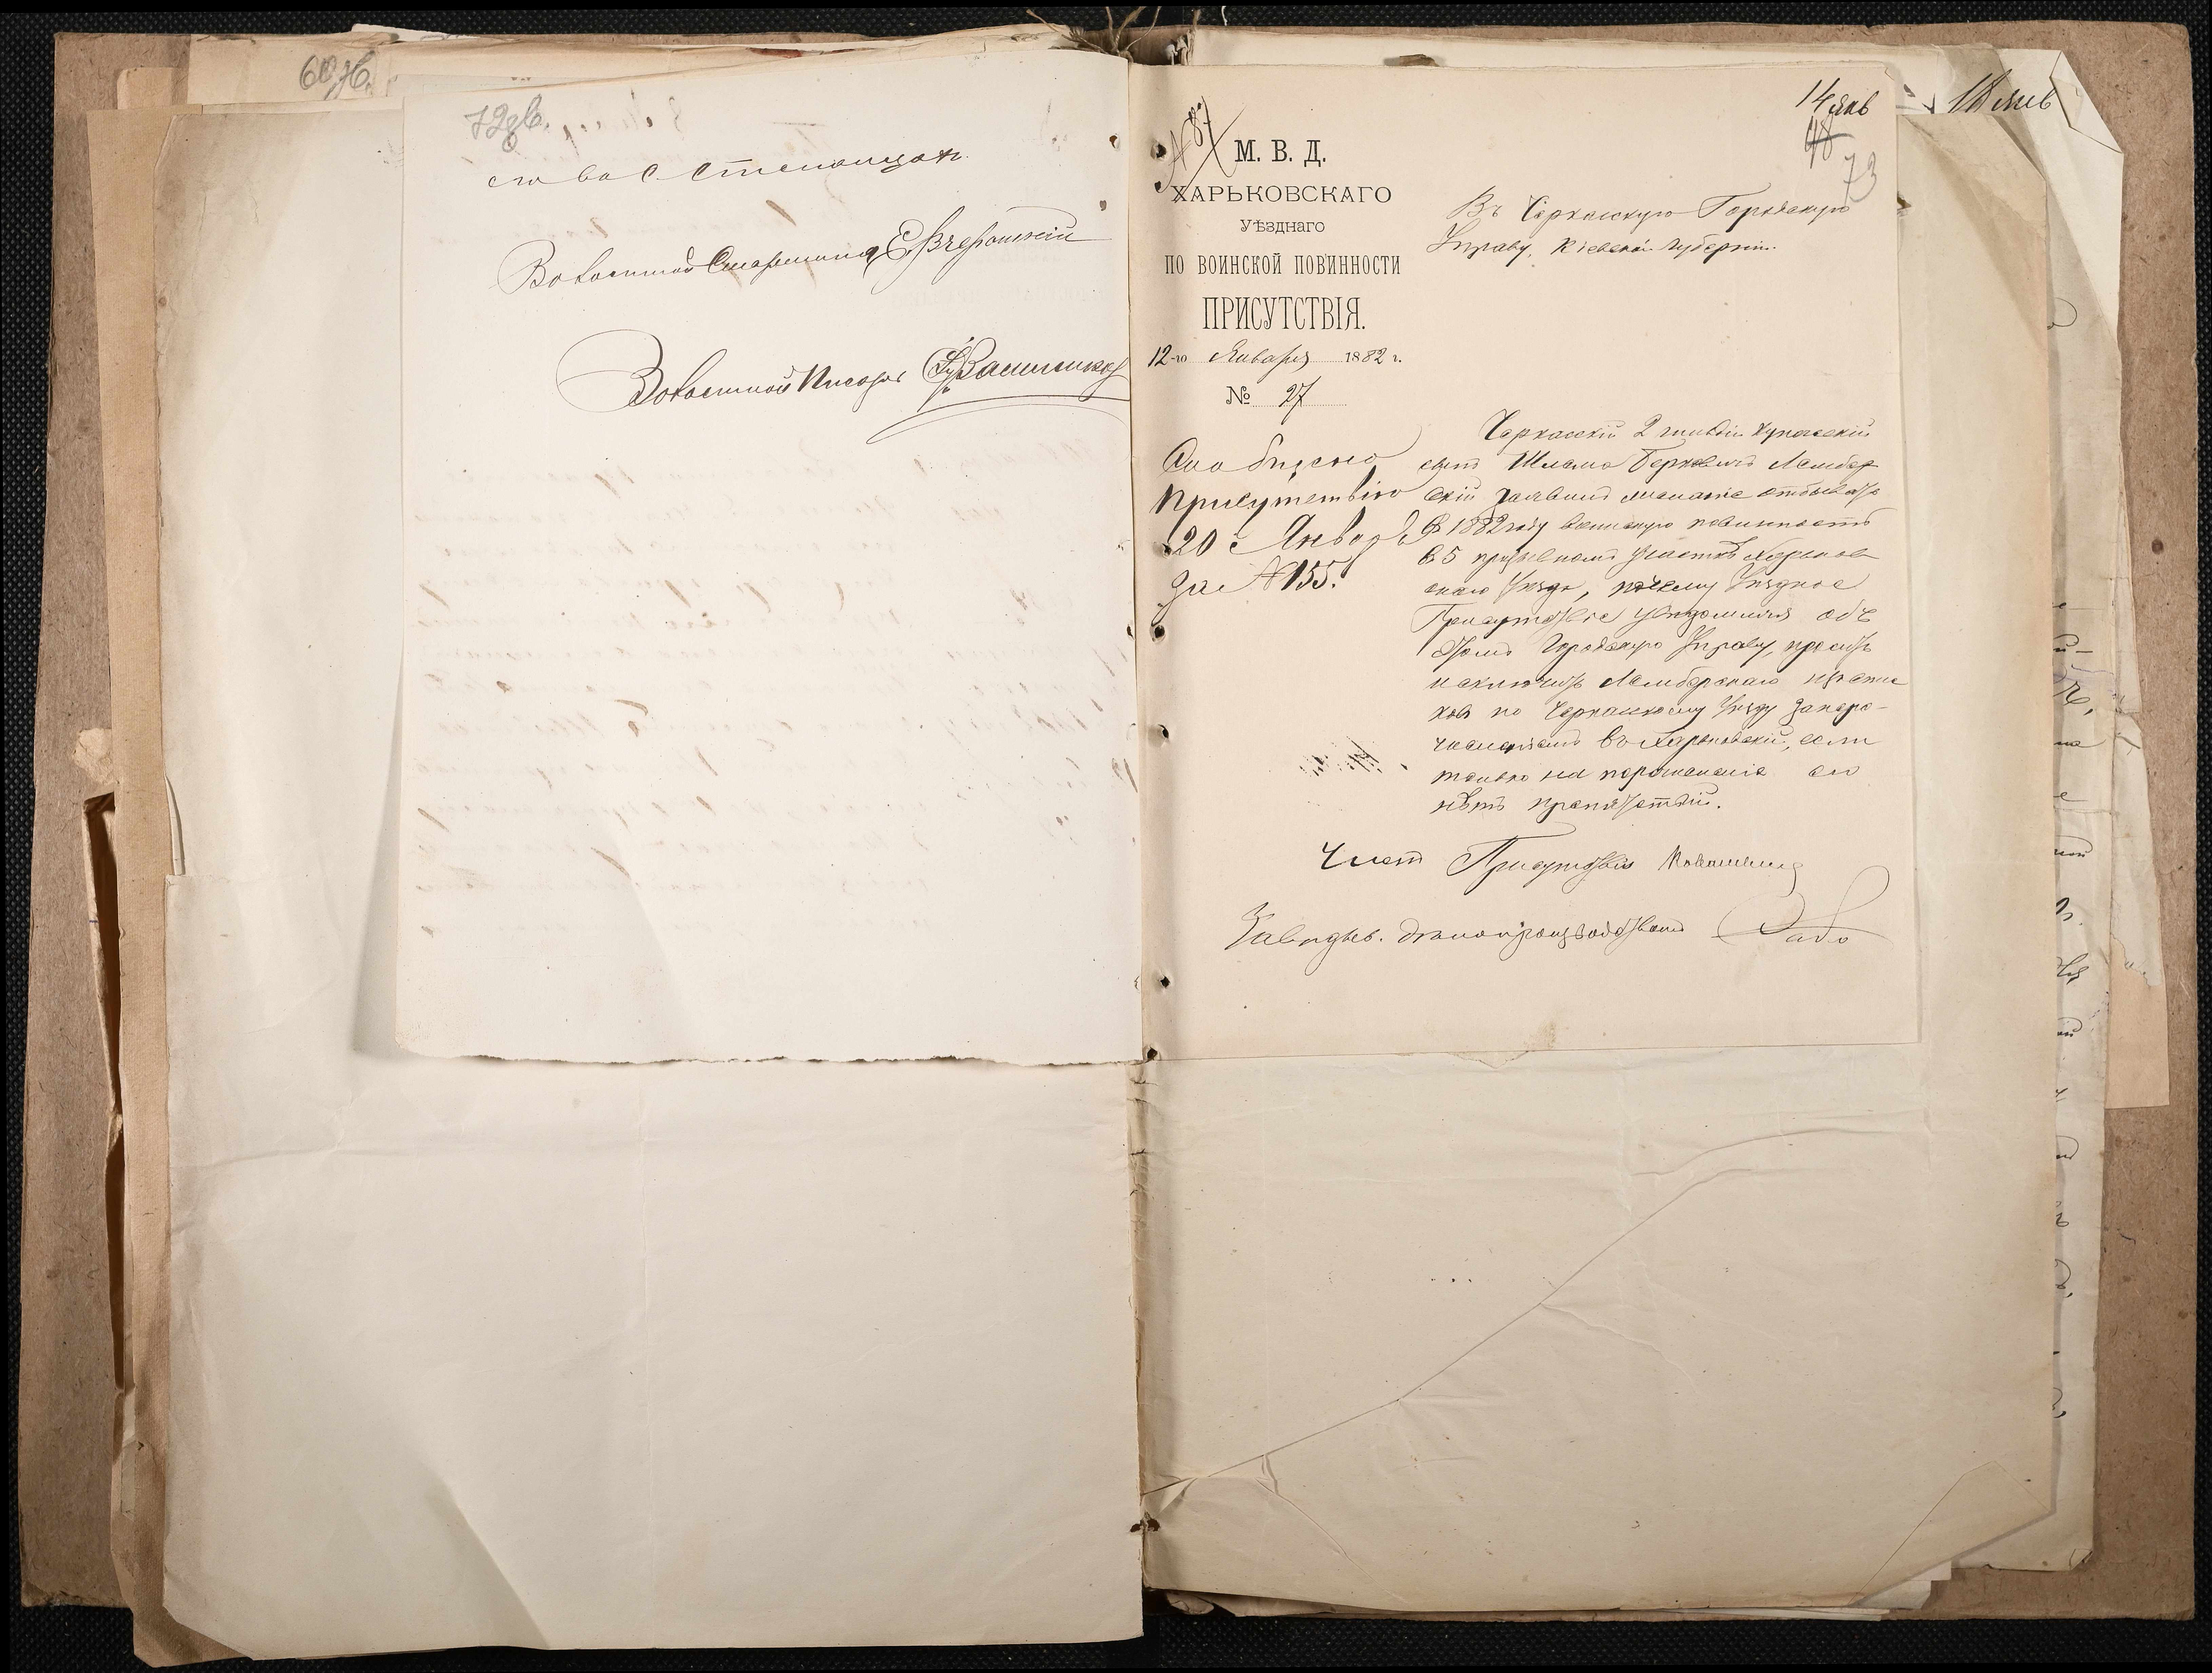 72 об.
его въ с. Степанцахъ
Волостной Старшина Е Вчерашній
Волостной Писарь
14 Янв
73
№ 87
М. В. Д.
ХАРЬКОВСКАГО
Уѣзднаго
ПО ВОИНСКОЙ ПОВИННОСТИ
ПРИСУТСТВІЯ.
12-го Января 1882 г.
№ 27
Въ Черкасскую Городскую
Управу, Кіевской губерніи.
Сообщено
Присутствію
20 Января
за № 155.
Черкасскій 2 гильдіи купеческій
сынъ Шлема Берковичъ Лемберг
скій заявилъ желаніе отбывать
въ 1882 году воинскую повинность
въ 5 призывномъ участкѣ Харьков
скаго Уѣзда, почему Уѣздное
Присутствіе увѣдомляя объ
этомъ Городскую Управу, проситъ
исключить Лембергскаго изъ спис
ковъ по Черкасскому Уѣзду перечис
леніемъ въ Харьковскій, если
только на перечисленіе его
нѣтъ препятствій.
Членъ Присутствія
Завѣдыв. дѣлопроизводствомъ